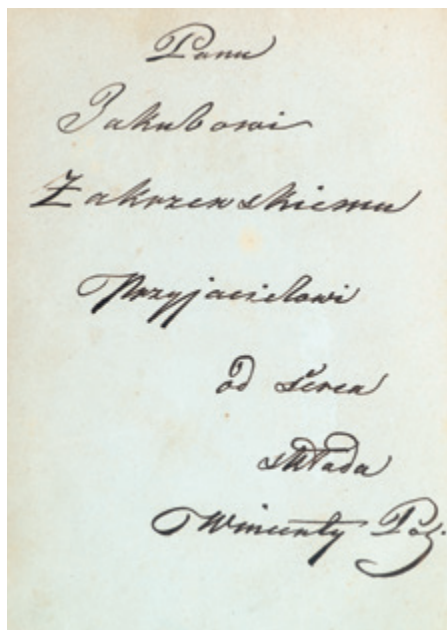 Panu
Jakubowi
Zakrzewskiemu
Przyjacielowi
od serca
składa
Wincenty Pol.